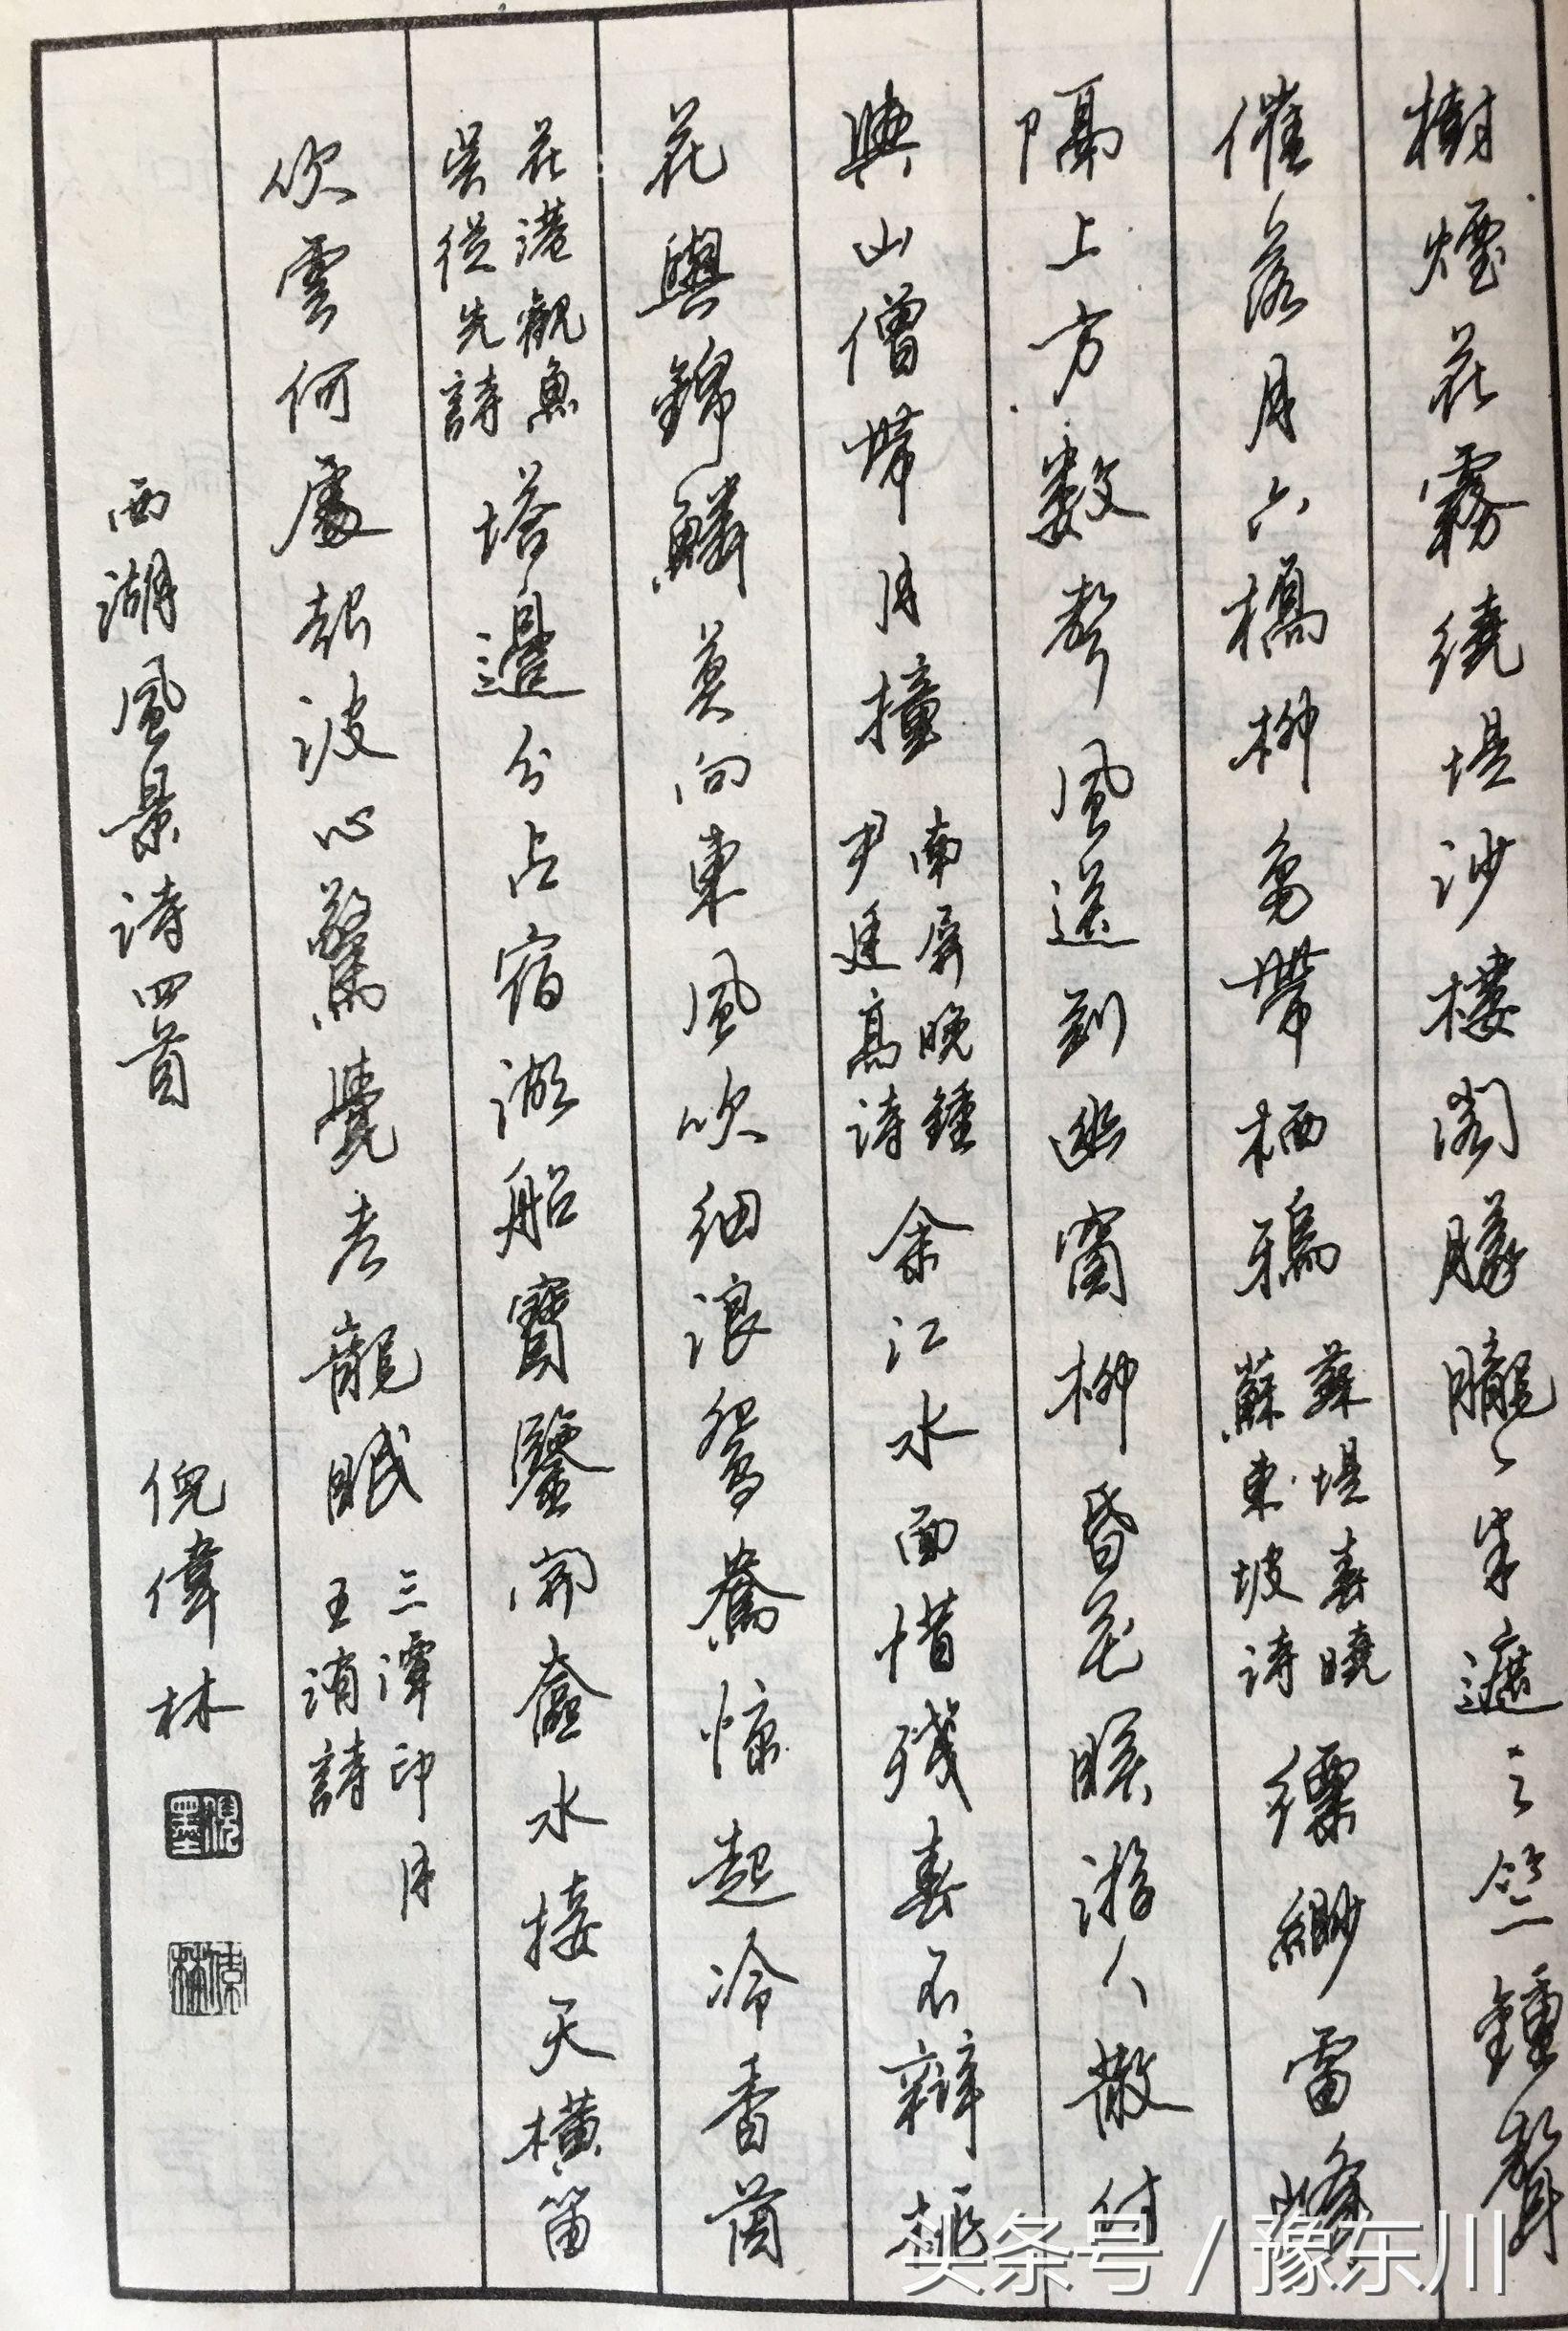 樹煙花霧繞堤沙樓閣朦朧〻半遮三竺鍾聲
催落月六橋柳色帶栖鴉
蘇堤春曉
蘇東坡詩
縹緲雷峰
隔上方數聲風送到幽窗柳昏花暝游人散付
與山僧帶月撞
南屏晚鍾
尹廷高詩
余江水面惜殘春不辯桃
花與錦鱗莫向東風吹細浪鴛鴦惊起冷香茵
花港觀魚
吳從先詩
塔邊分占宿湖船寶鑒開奩水接天橫笛
吹雲何處起波心驚覺老龍眠
三潭印月
王洧詩
西湖風景詩四首
倪偉林
头条号 / 豫东川